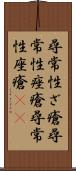 尋常性ざ瘡尋
常性痤瘡尋常
性座瘡